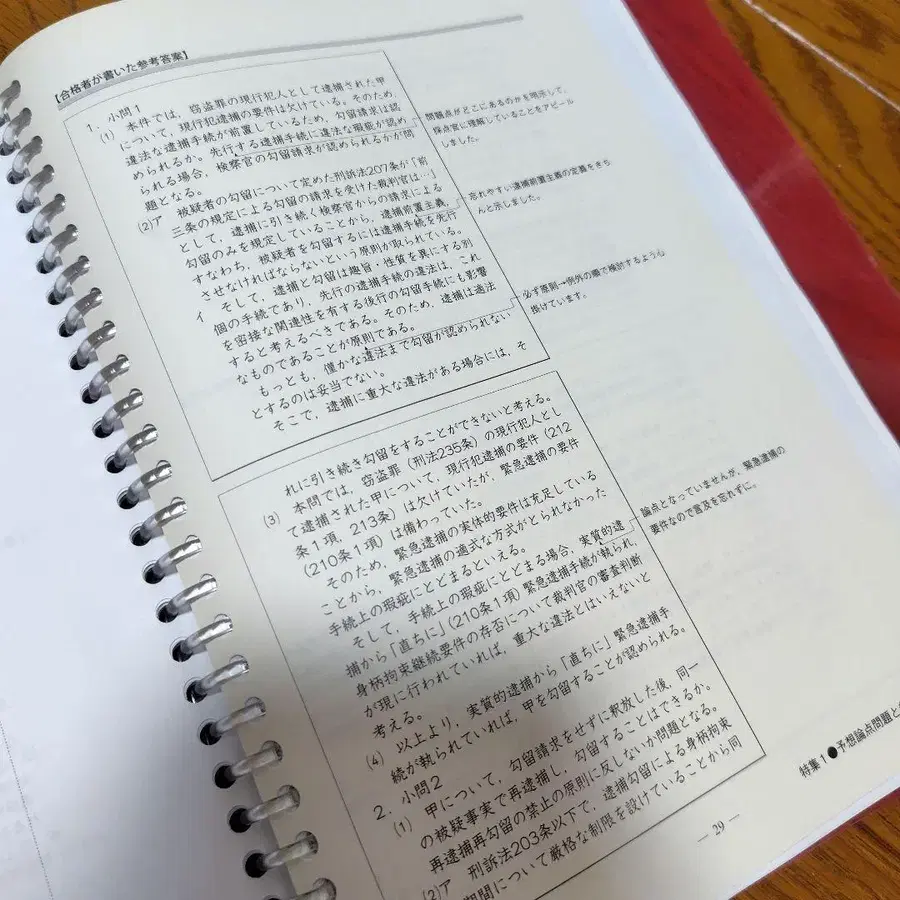 【合格者が書いた参考答案】
1．小問1
(1) 本件では，窃盗罪の現行犯人として逮捕された甲
について，現行犯逮捕の要件は欠けている。そのため，
違法な逮捕手続が前置しているため，勾留請求は認
められるか。先行する逮捕手続に違法な瑕疵が認め
られる場合，検察官の勾留請求が認められるかが問
題となる。
(2)ア 被疑者の勾留について定めた刑訴法207条が「前
三条の規定による勾留の請求を受けた裁判官は…」
として，逮捕に引き続く検察官からの請求による
勾留のみを規定していることから，逮捕前置主義，
すなわち，被疑者を勾留するには逮捕手続を先行
させなければならないという原則が取られている。
イ そして，逮捕と勾留は趣旨・性質を異にする別
個の手続であり，先行の逮捕手続の違法は，これ
を密接な関連性を有する後行の勾留手続にも影響
すると考えるべきである。そのため，逮捕は適法
なものであることが原則である。
もっとも，僅かな違法まで勾留が認められない
とするのは妥当でない。
そこで，逮捕に重大な違法がある場合には，そ
れに引き続き勾留をすることができないと考える。
(3) 本問では，窃盗罪（刑法235条）の現行犯人とし
て逮捕された甲について，現行犯逮捕の要件（212
条1項，213条）は欠けていたが，緊急逮捕の要件
（210条1項）は備わっていた。
そのため，緊急逮捕の実体的要件は充足している
ことから，緊急逮捕の適式な方式がとられなかった
手続上の瑕疵にとどまるといえる。
そして，手続上の瑕疵にとどまる場合，実質的逮
捕から「直ちに」（210条1項）緊急逮捕手続が執られ，
身柄拘束継続要件の存否について裁判官の審査判断
が現に行われていれば，重大な違法とはいえないと
考える。
(4) 以上より，実質的逮捕から「直ちに」緊急逮捕手
続が執られていれば，甲を勾留することが認められる。
2．小問2
(1) 甲について，勾留請求をせずに釈放した後，同一
の被疑事実で再逮捕し，勾留することはできるか。
再逮捕再勾留の禁止の原則に反しないか問題となる。
(2)ア 刑訴法203条以下で，逮捕勾留による身柄拘束
期間について厳格な制限を設けていることから同
問題点がどこにあるのかを明示して，
採点官に理解していることをアピール
しました。
忘れやすい逮捕前置主義の定義をきち
んと示しました。
必ず原則→例外の順で検討するよう心
掛けています。
論点となっていませんが，緊急逮捕の
要件なので言及を忘れずに。
特集1●予想論点問題と
— 29 —